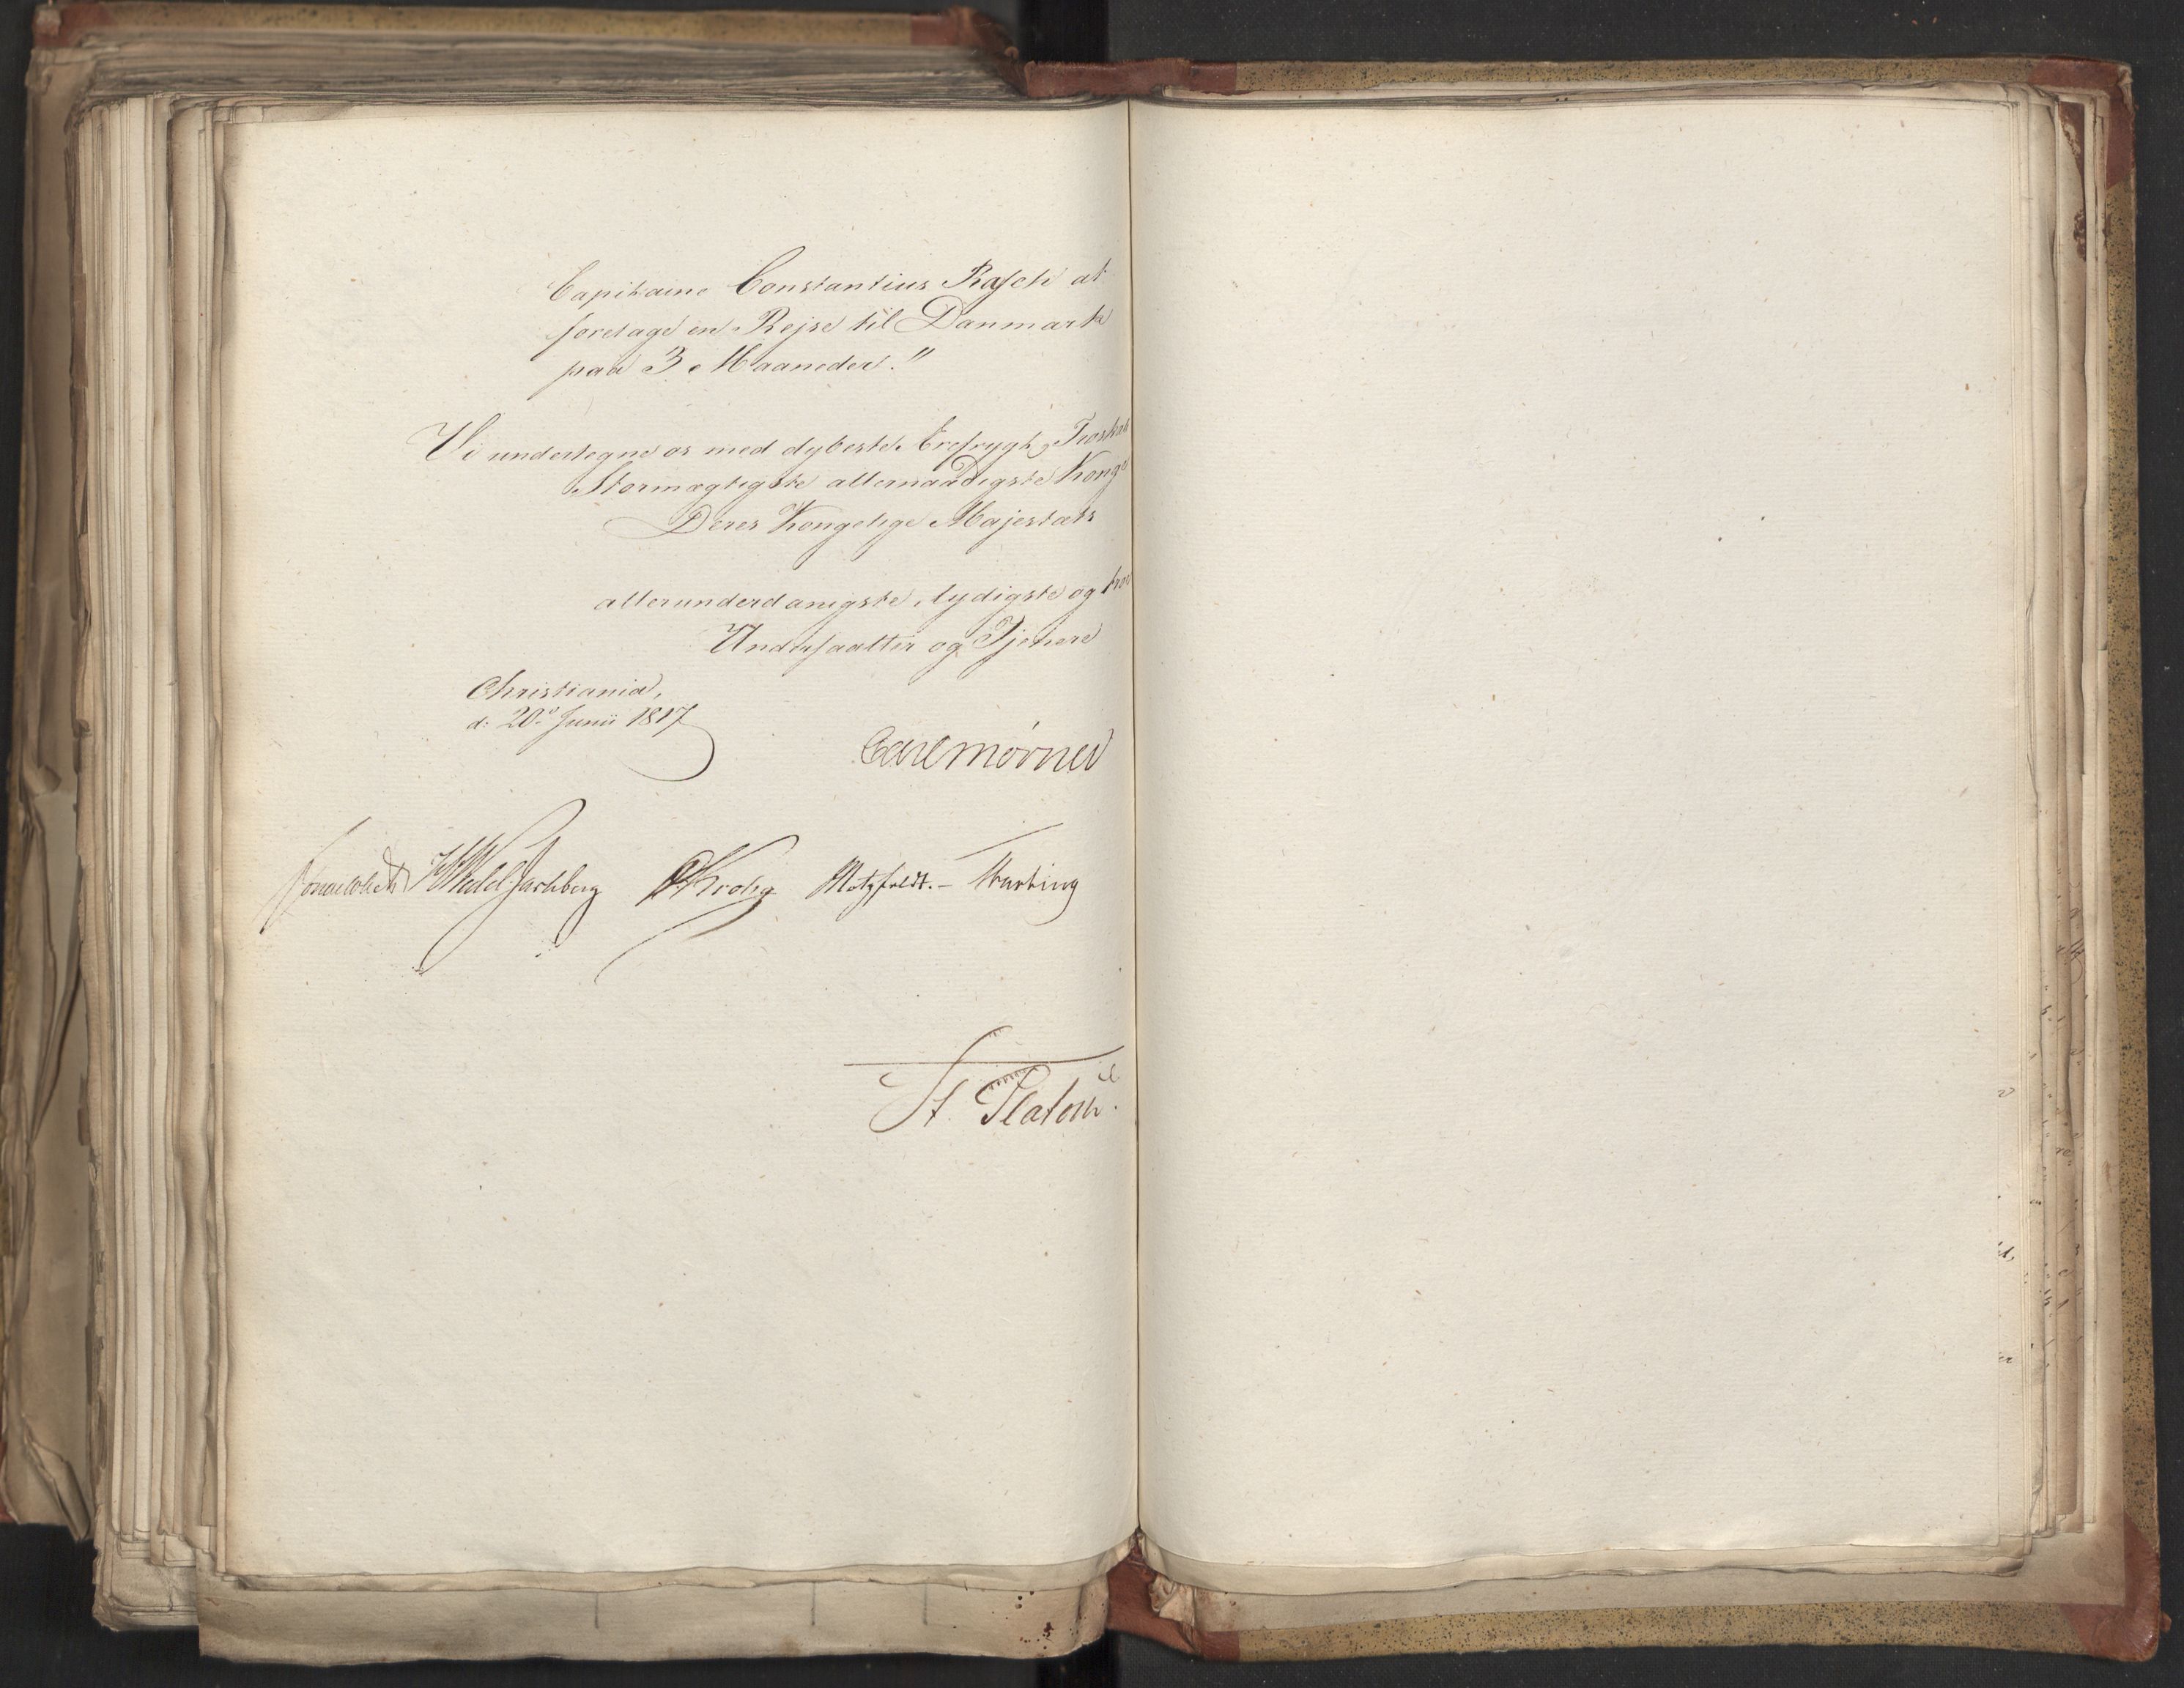 Capitaine Constantius Rasch at
foretage en Rejse til Danmark
paa 3 Maaneder."
Vi undertegne os med dybeste Ærefrygt, Troskab
Stormægtigste allernaadigste Konge
Deres Kongelige Majestæts
allerunderdanigste, lydigste og troe
Undersaatter og Tjenere
Christiania,
d: 20de Junii 1817
Carl Mörner
Sommerhielm HWedel Jarlsberg CKrohg Motzfeldt. - Harbing
St. Platou